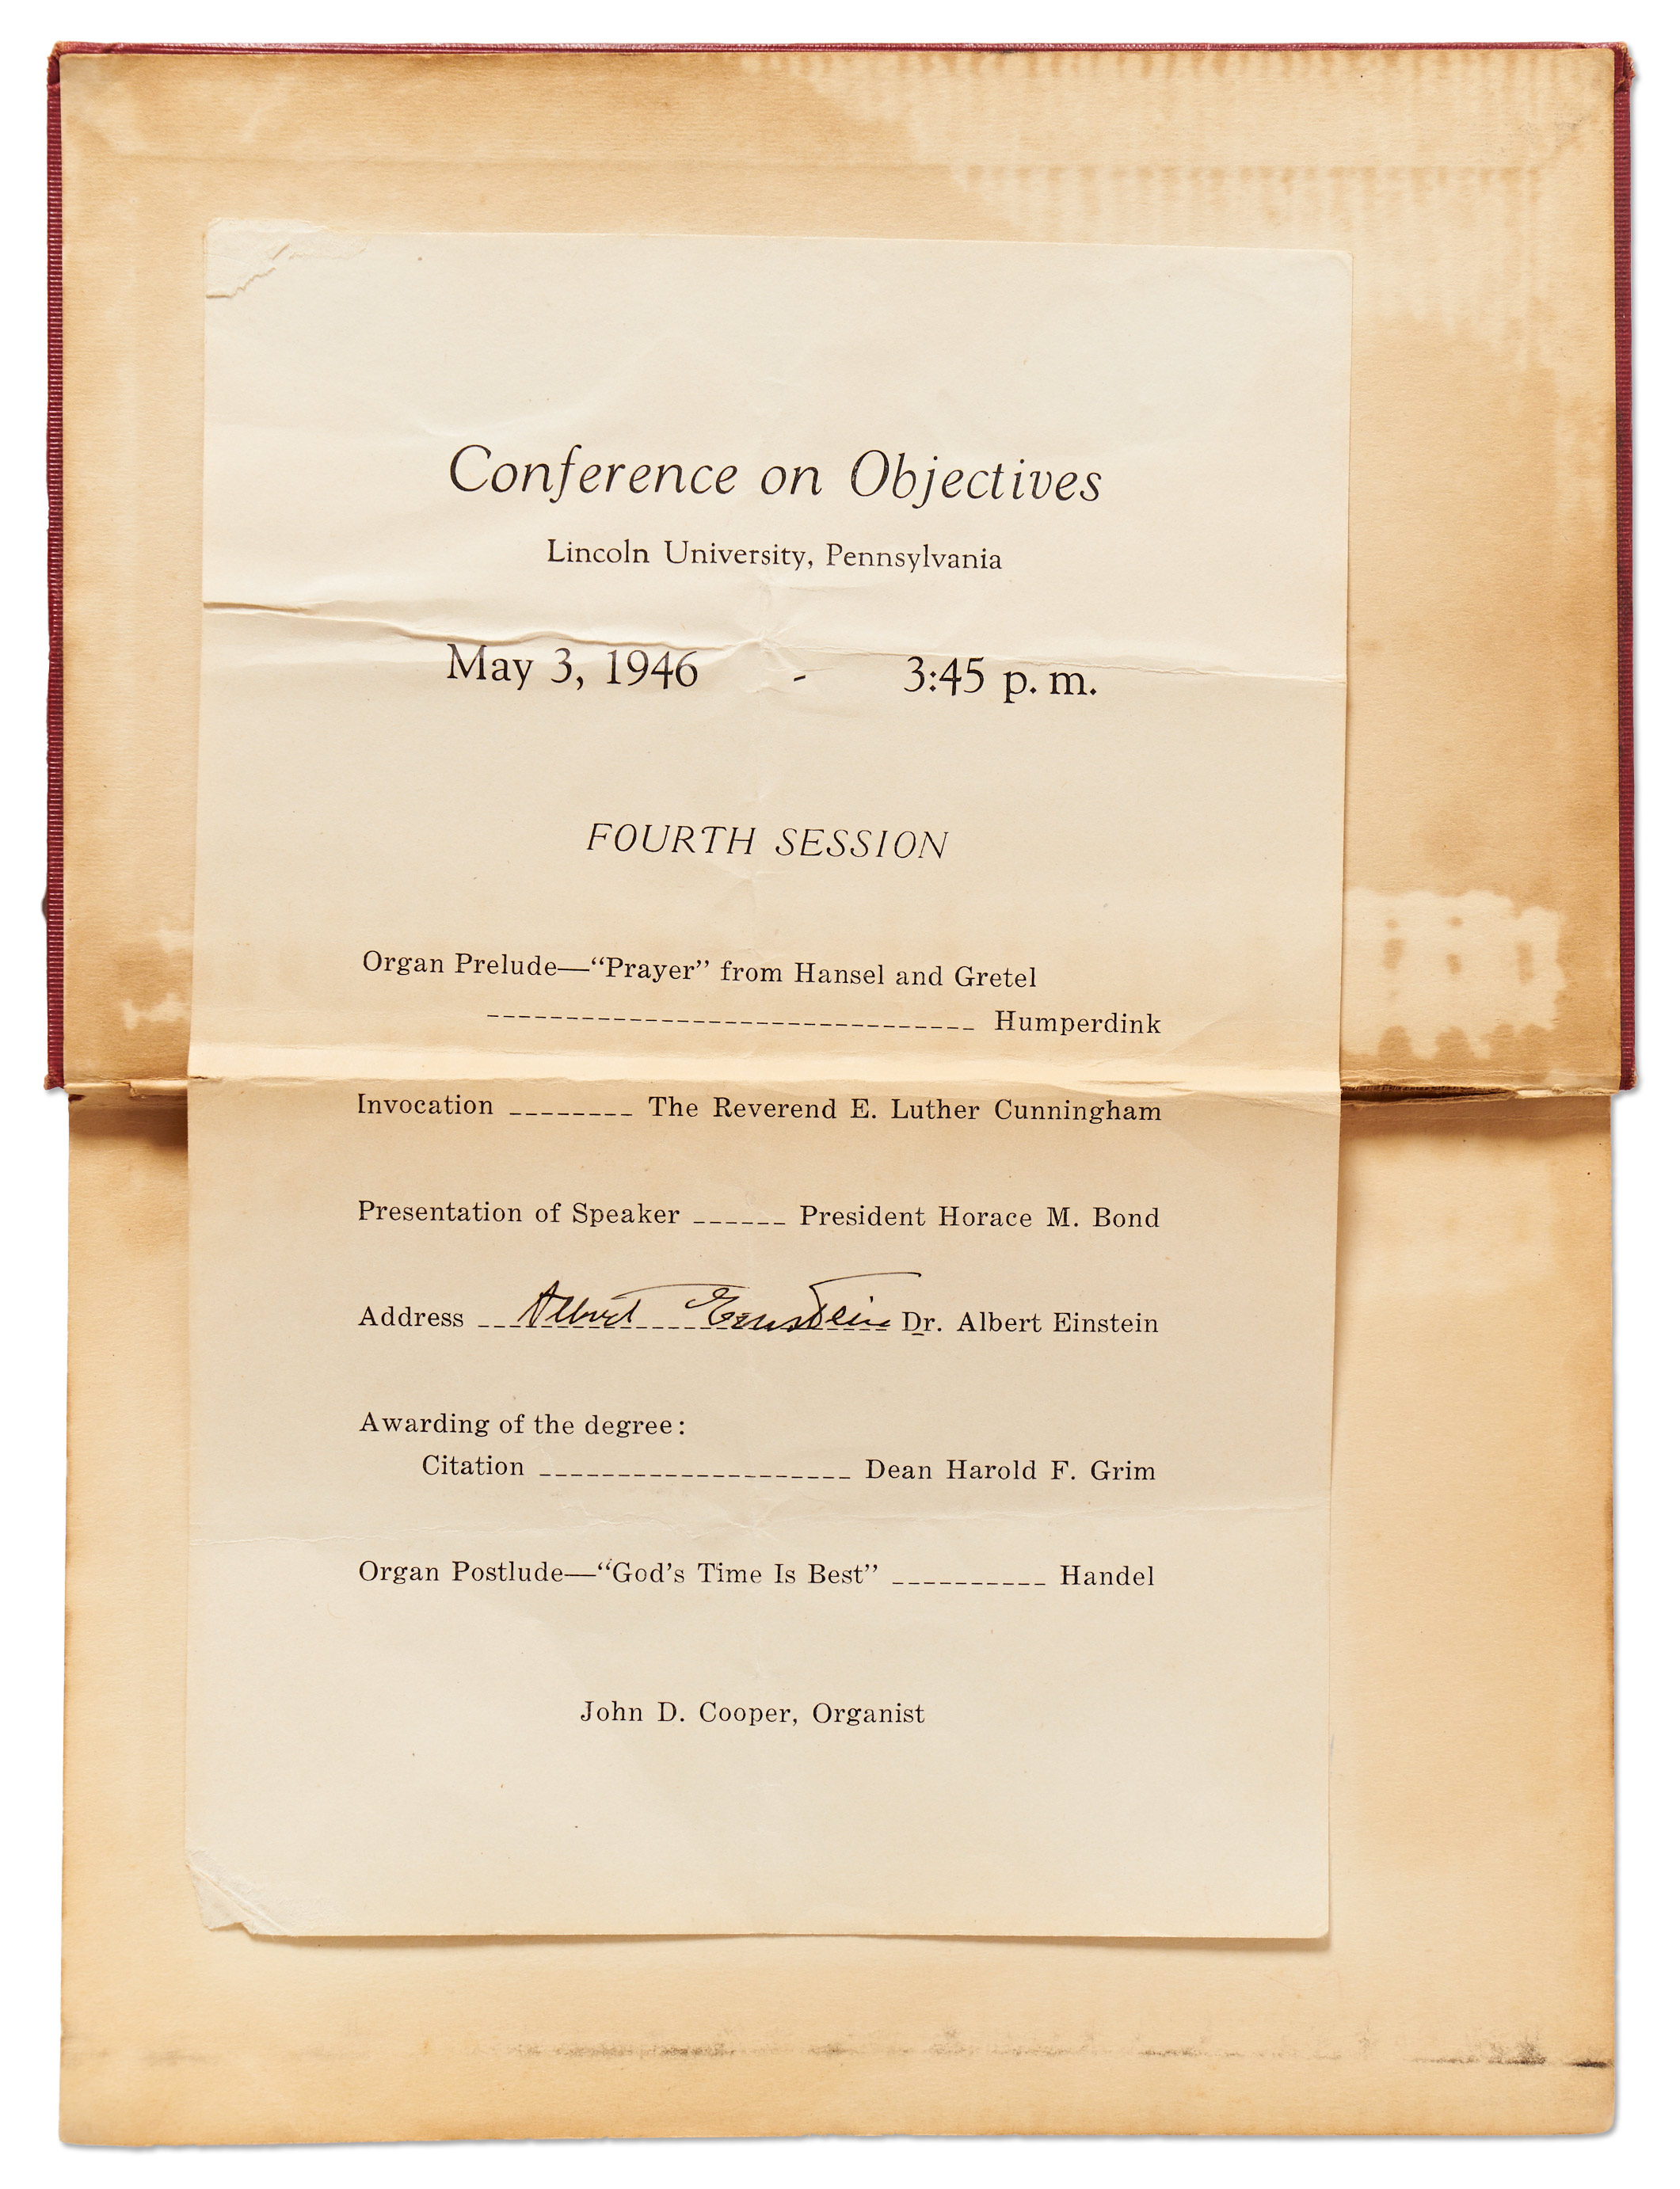 Conference on Objectives
Lincoln University, Pennsylvania
May 3, 1946 - 3:45 p. m.
FOURTH SESSION
Organ Prelude—“Prayer” from Hansel and Gretel
_______________________________ Humperdink
Invocation ________ The Reverend E. Luther Cunningham
Presentation of Speaker ______ President Horace M. Bond
Address __Albert Einstein__ Dr. Albert Einstein
Awarding of the degree:
Citation ____________________ Dean Harold F. Grim
Organ Postlude—“God’s Time Is Best” __________ Handel
John D. Cooper, Organist